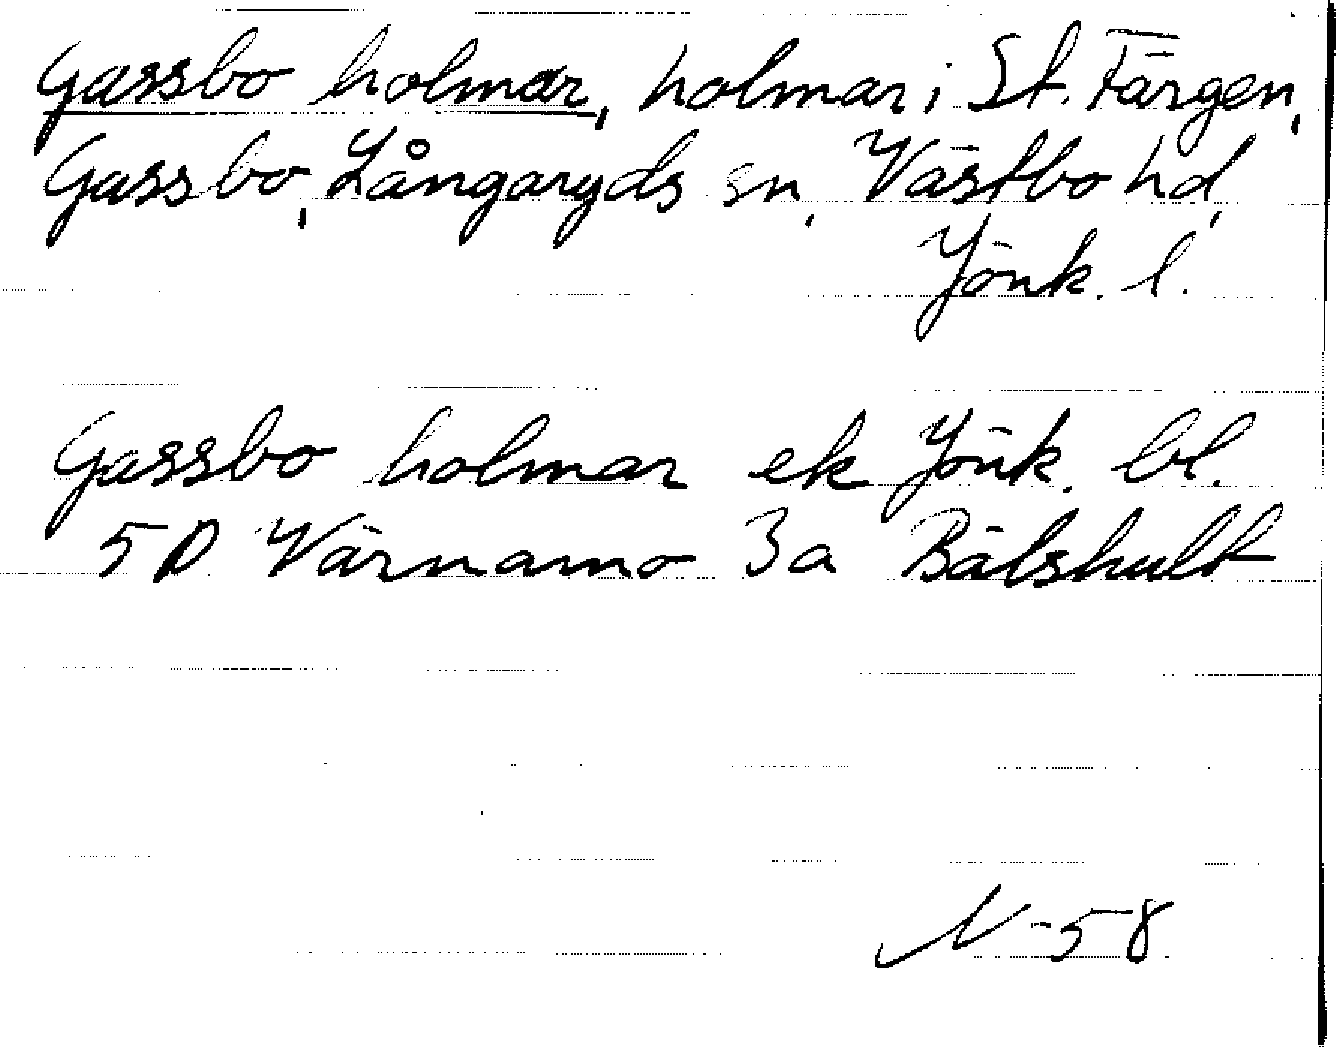 Gassbo holmar, holmar i St. Färgen,
Gassbo, Långaryds sn, Västbo hd,
Jönk. l.
Gassbo holmar ek Jönk. bl.
5D Värnamo 3a Bälshult
N-58